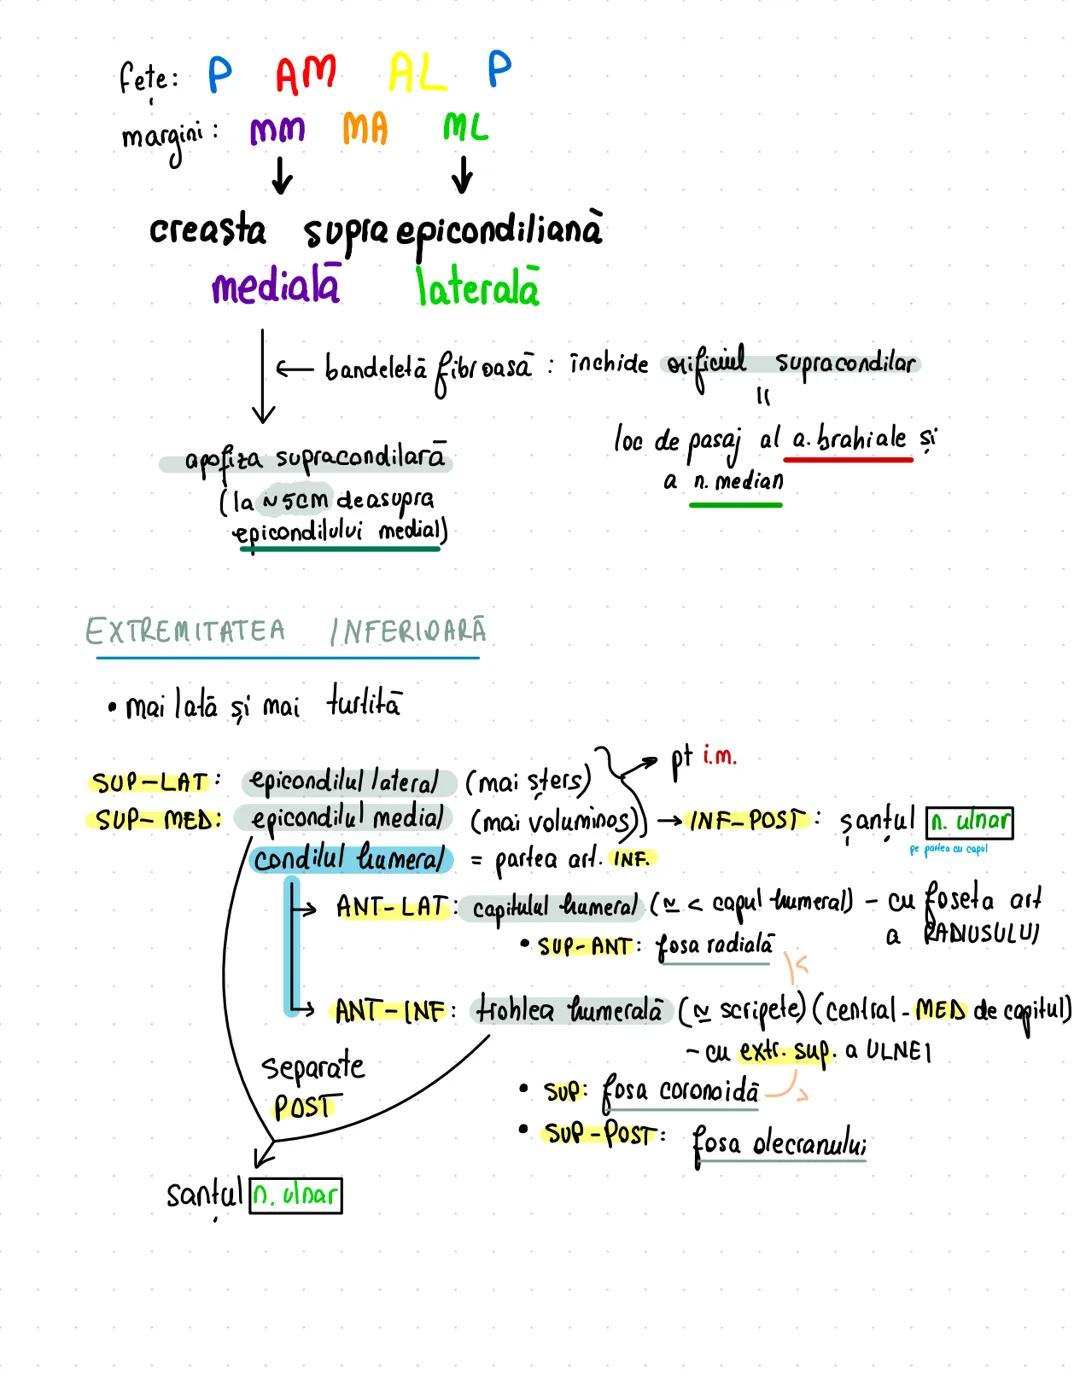 fețe: P AM AL P
margini: MM MA ML
↓ ↓
creasta supraepicondiliană
medială laterală
← bandeletă fibroasă : închide orificiul supracondilar
=
loc de pasaj al a. brahiale și
a n. median
apofiza supracondilară
(la ~5cm deasupra
epicondilului medial)
EXTREMITATEA INFERIOARĂ
• mai lată și mai turtită
→ pt i.m.
SUP-LAT: epicondilul lateral (mai șters)
SUP-MED: epicondilul medial (mai voluminos) → INF-POST: șanțul n. ulnar
pe partea cu capul
condilul humeral = partea art. INF.
→ ANT-LAT: capitulul humeral (≃ < capul humeral) - cu foseta art
a RADIUSULUI
• SUP-ANT: fosa radială
→ ANT-INF: trohlea humerală (≃ scripete) (central-MED de capitul)
- cu extr. sup. a ULNEI
• SUP: fosa coronoidă
• SUP-POST: fosa olecranului
separate
POST
șanțul n. ulnar